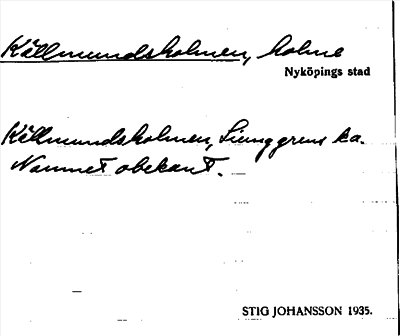 Källmundsholmen, holme
Nyköpings stad
Källmundsholmen, Ljunggrens ka.
Namnet obekant.
STIG JOHANSSON 1935.